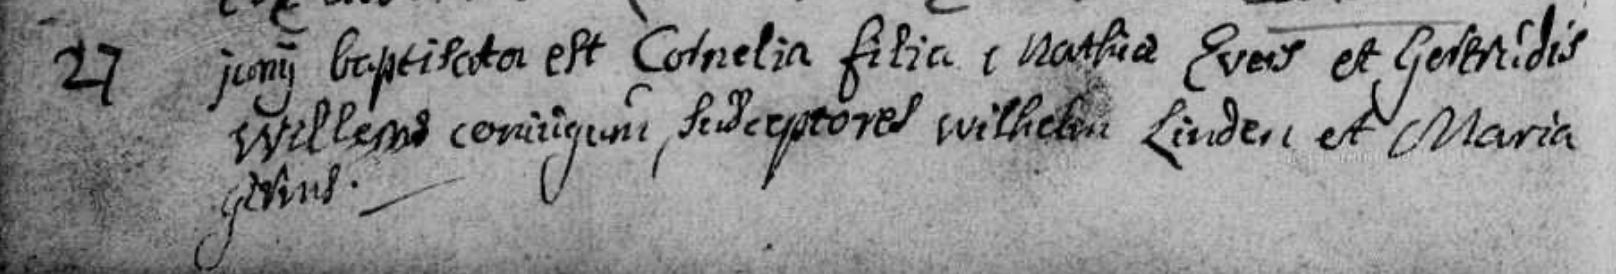 27 junij baptisata est Cornelia filia Mathiae Evers et Gertrudis
Willems coniugum, susceptores wilhelm Linden et Maria